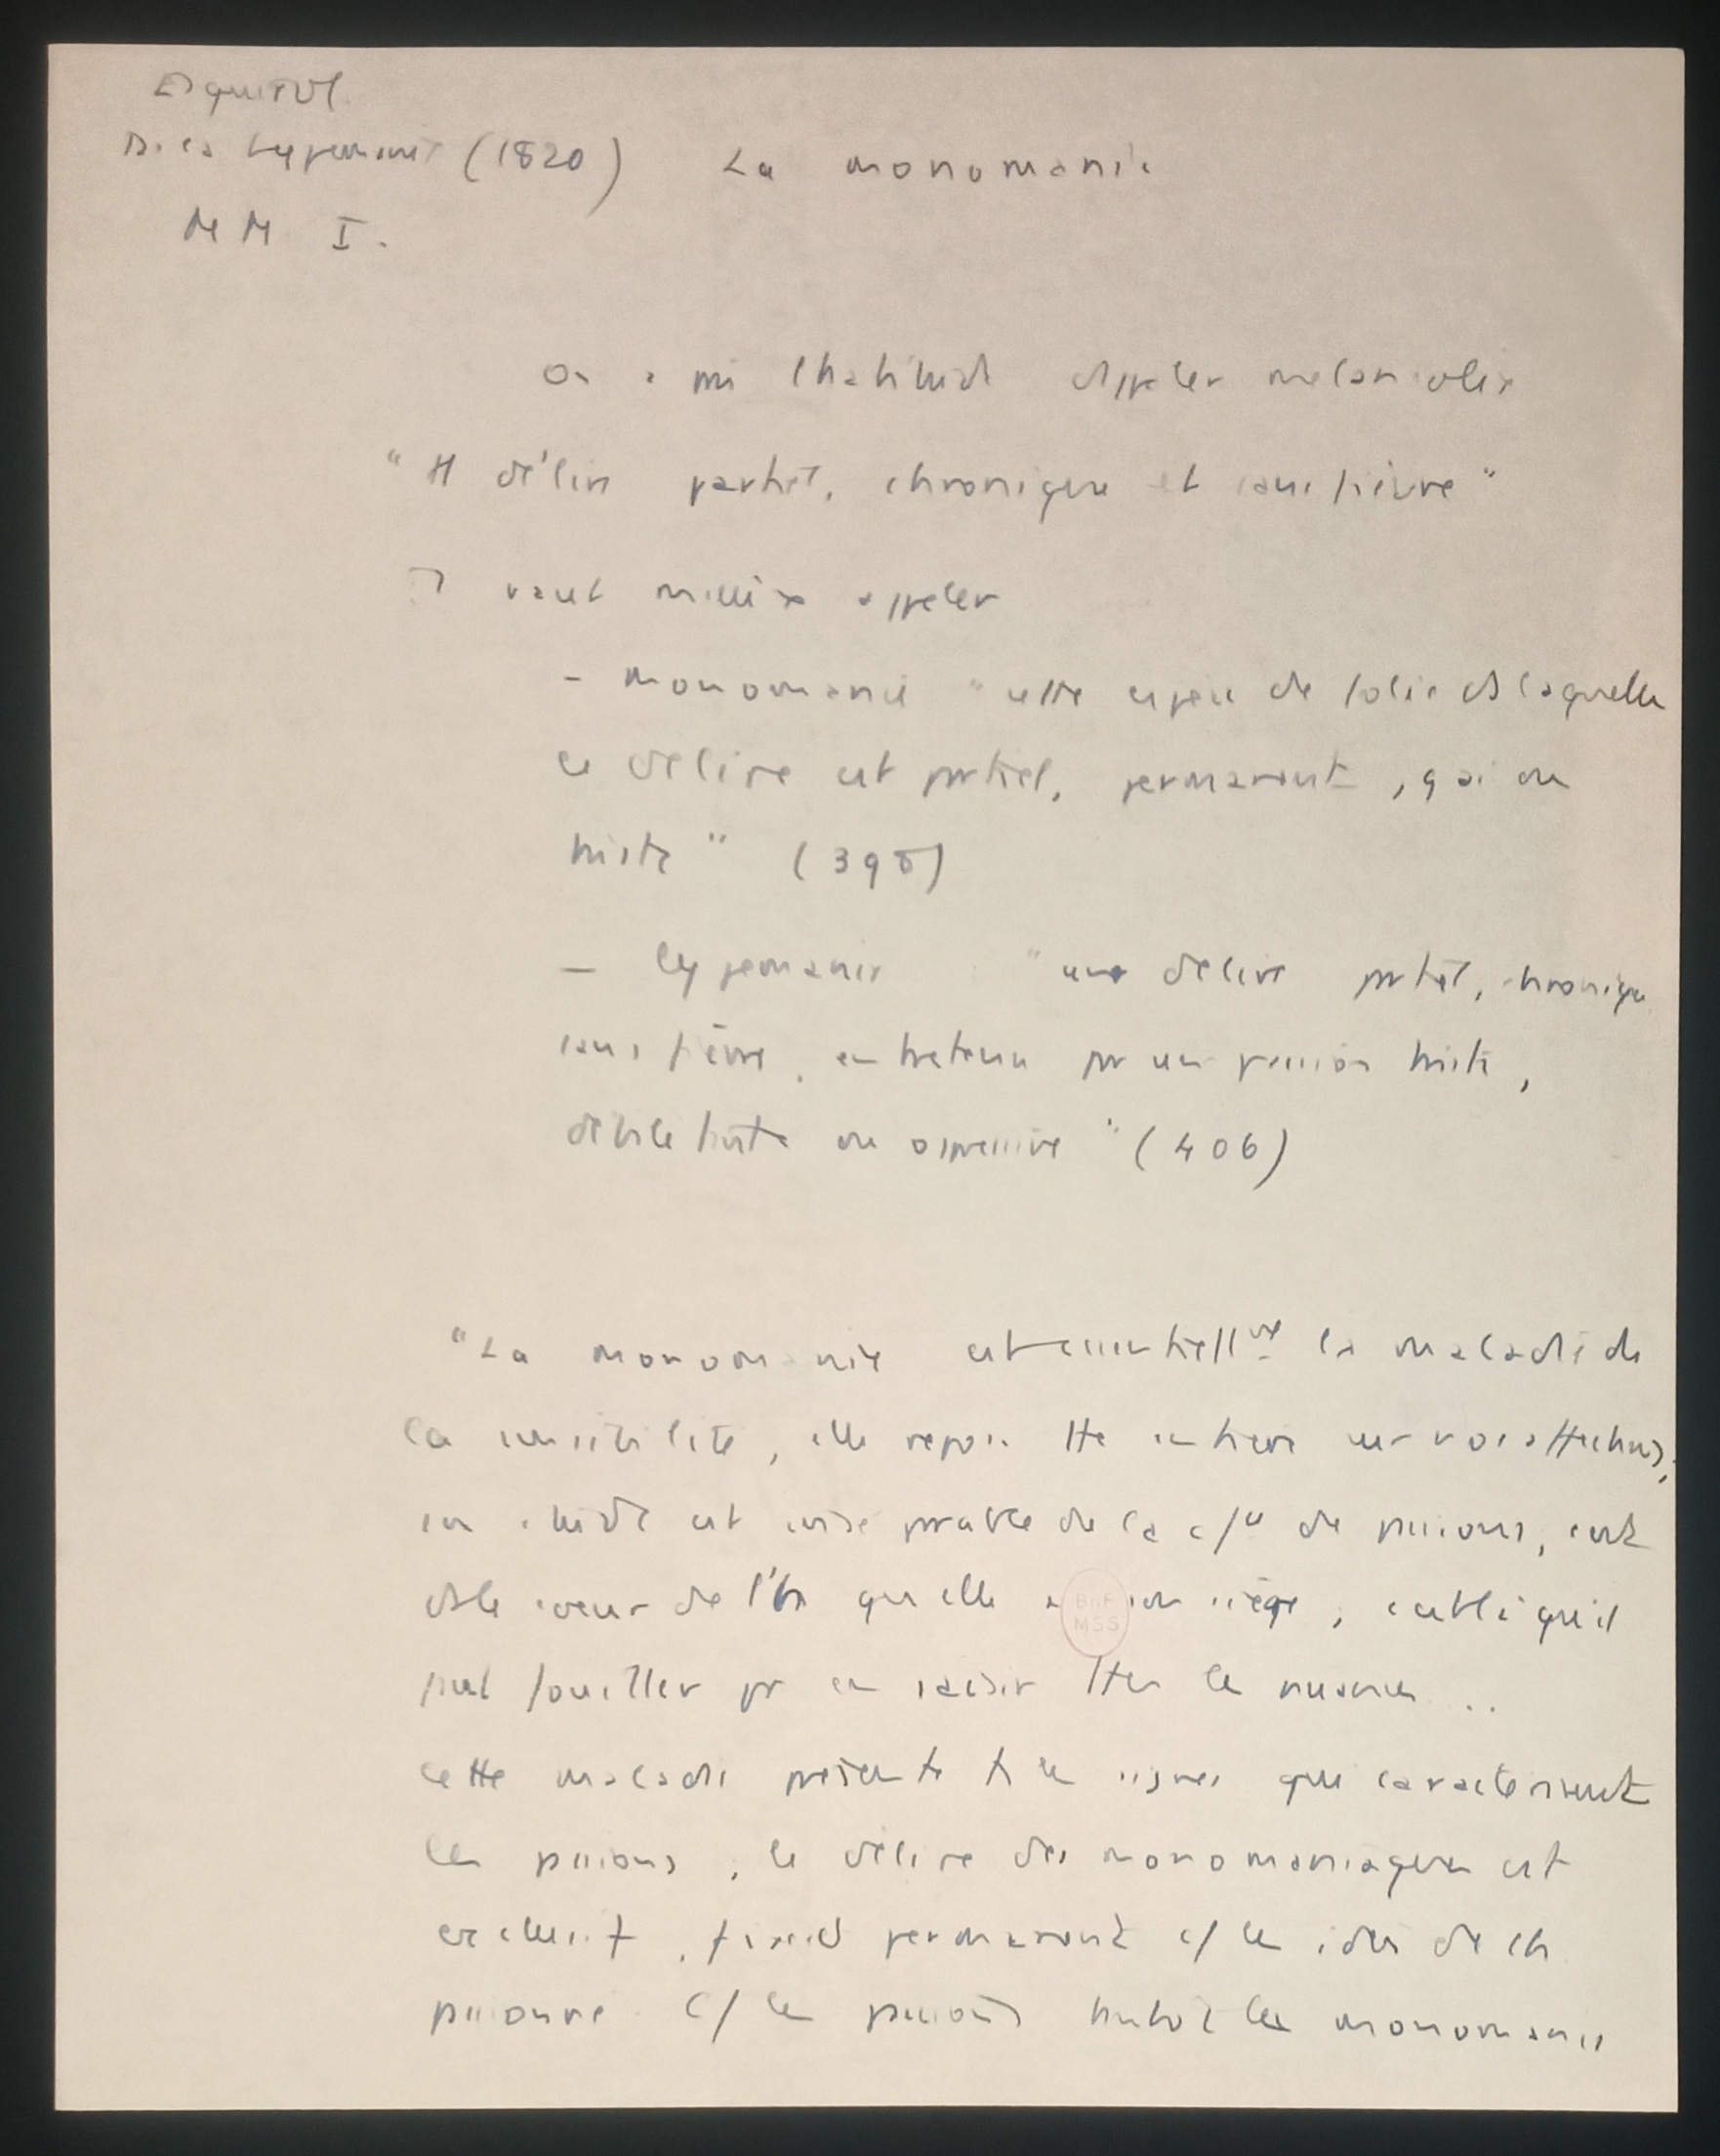 Esquirol
De la Lypémanie (1820) La monomanie
M M I.
On a pris l'habitude d'appeler mélancolie
"tt délire partiel, chronique et sans fièvre"
Il vaut mieux appeler
- monomanie "cette espèce de folie ds laquelle
le délire est partiel, permanent, gai ou
triste" (398)
- lypémanie "un délire partiel, chronique
sans fièvre, entretenu pr une passion triste,
débilitante ou oppressive" (406)
"La monomanie est essentiellmt la maladie de
la sensibilité, elle repose tte entière sur nos affections;
son étude est inséparable de la c/ce de passions, c'est
ds le cœur de l'h. qu'elle a son siège, c'est là qu'il
faut fouiller pr en saisir ttes les nuances ..
Cette maladie présente ts les signes que caractérisent
les passions; le délire des monomaniaques est
exclusif, fixe et permanent c/ les idées de l'h.
passionné. C/ les passions tantôt les monomanies